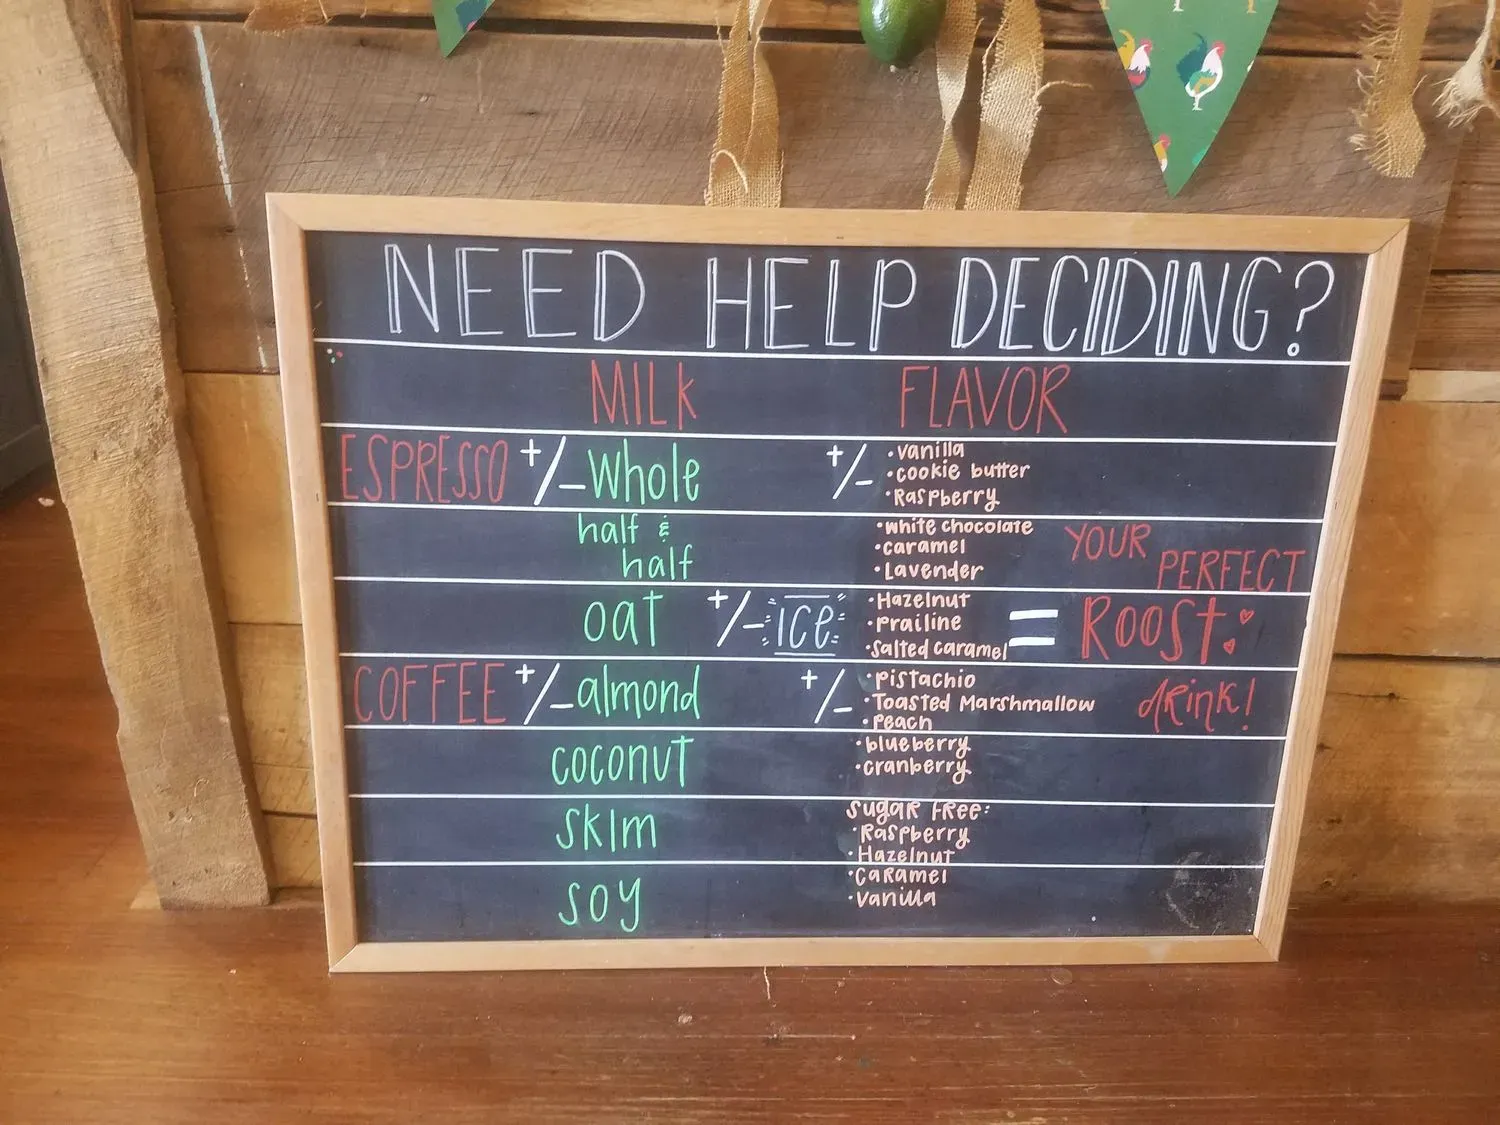 NEED HELP DECIDING?
MILK FLAVOR
ESPRESSO +/- Whole +/- • vanilla
• cookie butter
• Raspberry
half &
half
• white chocolate
• caramel
• Lavender
YOUR PERFECT
oat +/- ice
• Hazelnut
• Prailine
• salted caramel
= ROOST
COFFEE +/- almond +/- • Pistachio
• Toasted Marshmallow
• Peach
drink!
coconut
• blueberry
• cranberry
skim
sugar free:
• Raspberry
• Hazelnut
soy
• Caramel
• vanilla